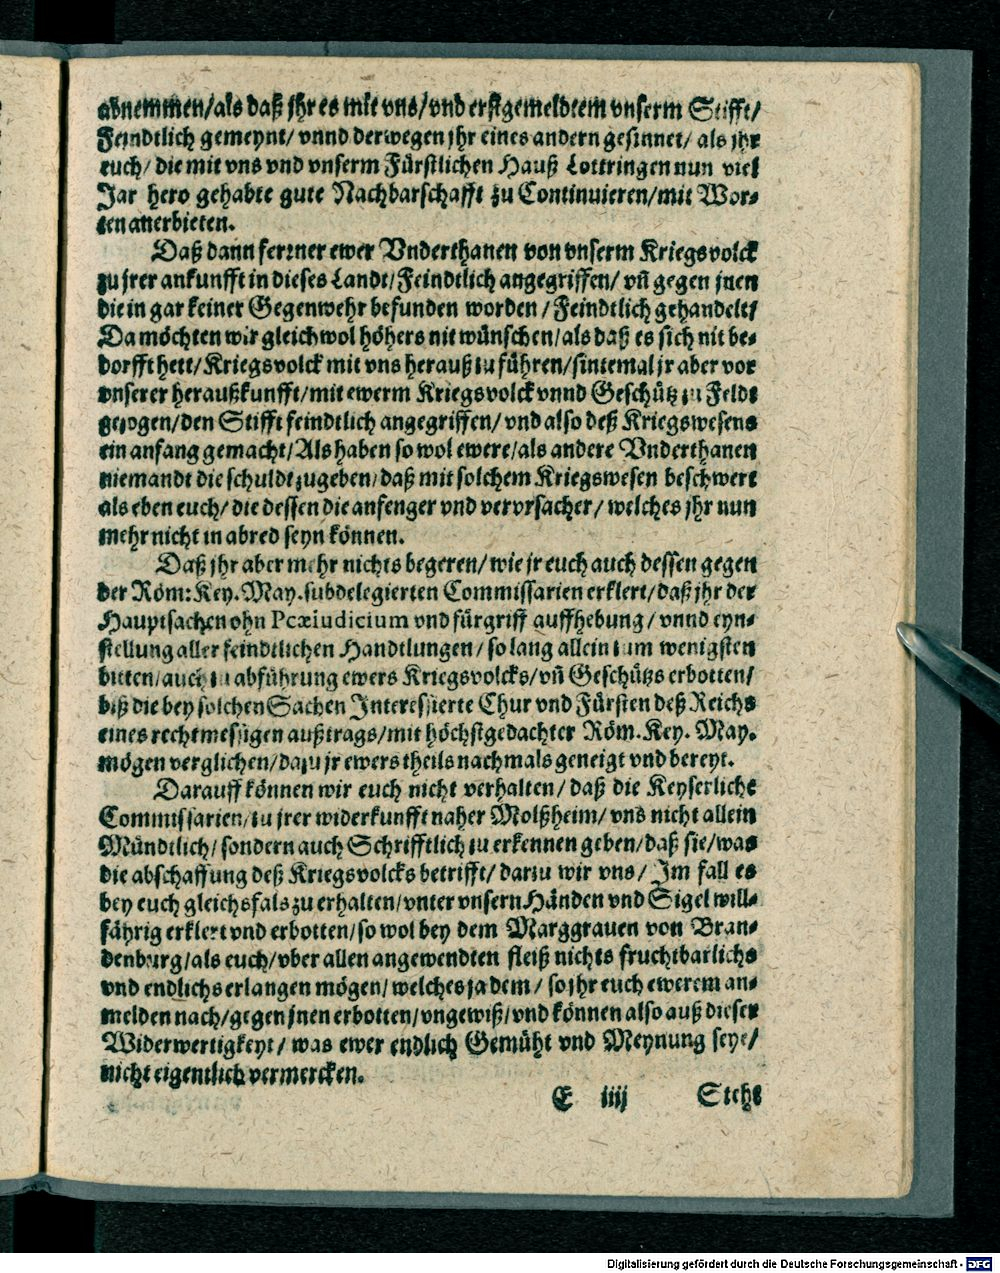 abnemmen/als daß jhr es mit vns/vnd erstgemeldtem vnserm Stifft/
Feindtlich gemeynt/ vnnd derwegen jhr eines andern gesinnet/ als jhr
euch/ die mit vns vnd vnserm Fürstlichen Hauß Lottringen nun viel
Jar hero gehabte gute Nachbarschafft zu Continuieren/mit Wor-
ten anerbieten.
Daß dann ferrner ewer Vnderthanen von vnserm Kriegsvolck
zu jrer ankunfft in dieses Landt/Feindtlich angegriffen/ vñ gegen jnen
die in gar keiner Gegenwehr befunden worden/Feindtlich gehandelt/
Da möchten wir gleichwol höhers nit wünschen/als daß es sich nit be-
dorfft hett/Kriegsvolck mit vns herauß zu führen/sintemal jr aber vor
vnserer heraußkunfft/mit ewerm Kriegsvolck vnnd Geschütz zu Feldt
gezogen/den Stifft feindtlich angegriffen/ vnd also deß Kriegswesens
ein anfang gemacht/Als haben so wol ewere/als andere Vnderthanen
niemandt die schuldt zugeben/daß mit solchem Kriegswesen beschwert
als eben euch/ die dessen die anfenger vnd vervrsacher/ welches jhr nun
mehr nicht in abred seyn können.
Daß jhr aber mehr nichts begeren/ wie jr euch auch dessen gegen
der Röm: Key. May. subdelegierten Commissarien erklert/daß jhr der
Hauptsachen ohn Pcæiudicium vnd fürgriff auffhebung/ vnnd eyn-
stellung aller feindtlichen Handtlungen/ so lang allein zum wenigsten
bitten/auch zu abführung ewers Kriegsvolcks/vñ Geschützs erbotten/
biß die bey solchen Sachen Interessierte Chur vnd Fürsten deß Reichs
eines rechtmessigen außtrags/mit höchstgedachter Röm. Key. May.
mögen verglichen/dazu jr ewers theils nachmals geneigt vnd bereyt.
Darauff können wir euch nicht verhalten/ daß die Keyserliche
Commissarien/zu jrer widerkunfft naher Molßheim/ vns nicht allein
Mündtlich/ sondern auch Schrifftlich zu erkennen geben/daß sie/was
die abschaffung deß Kriegsvolcks betrifft/ darzu wir vns/ Im fall es
bey euch gleichsfals zu erhalten/vnter vnsern Händen vnd Sigel will-
fährig erklert vnd erbotten/so wol bey dem Marggrauen von Bran-
denburg/als euch/vber allen angewendten fleiß nichts fruchtbarlichs
vnd endlichs erlangen mögen/welches ja dem/ so jhr euch ewerem an-
melden nach/gegen jnen erbotten/vngewiß/vnd können also auß dieser
Widerwertigkeyt/ was ewer endlich Gemüht vnd Meynung seye/
nicht eigentlich vermercken.
E iiij Steht
Digitalisierung gefördert durch die Deutsche Forschungsgemeinschaft - DFG